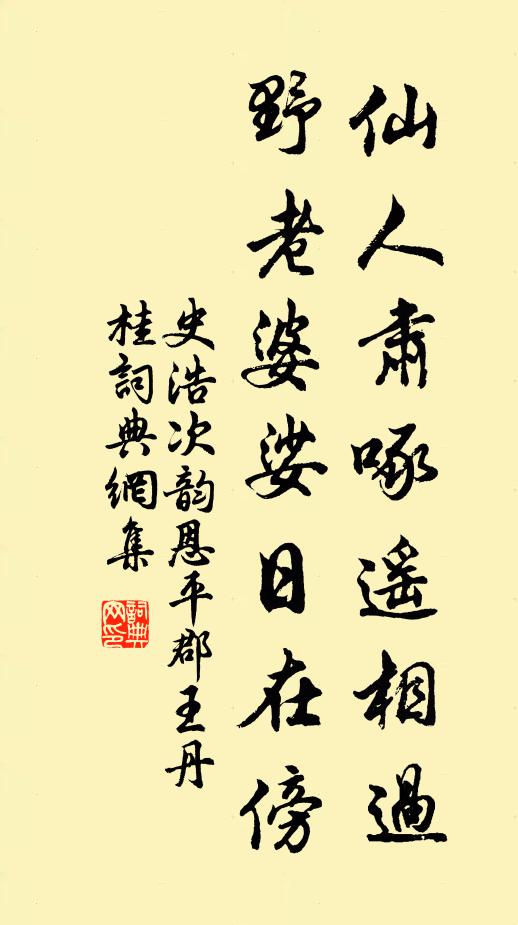 仙人肃啄遥相過
野老婆娑日在傍
史浩次韵恩平郡王丹
桂詞典網集
詞典
网印